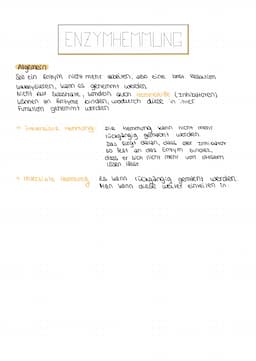 ENZYMHEMMUNG
Allgemein
Soll ein Enzym nicht mehr arbeiten, also eine best. Reaktion
katalysieren, kann es gehemmt werden.
Nicht nur Substrate, sondern auch Hemmstoffe (Inhibitoren)
können an Enzyme binden, wodurch diese in ihrer
Funktion gehemmt werden.
→ Irreversible Hemmung: Die Hemmung kann nicht mehr
rückgängig gemacht werden.
Das liegt daran, dass der Inhibitor
so fest an das Enzym bindet,
dass er sich nicht mehr von diesem
lösen lässt
→ Reversible Hemmung: Es kann rückgängig gemacht werden.
Man kann diese weiter einteilen in: